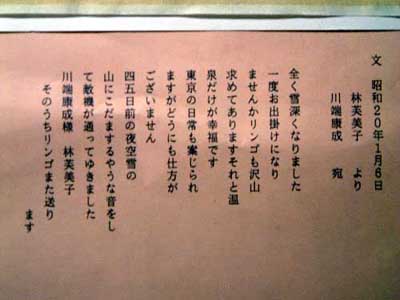 文 昭和20年1月6日
林芙美子 より
川端康成 宛
全く雪深くなりました
一度お出掛けになり
ませんかリンゴも沢山
求めてありますそれと温
泉だけが幸福です
東京の日常も案じられ
ますがどうにも仕方が
ございません
四五日前の夜空雪の
山にこだまするやうな音をし
て敵機が通ってゆきました
川端康成様 林芙美子
そのうちリンゴまた送り
ます